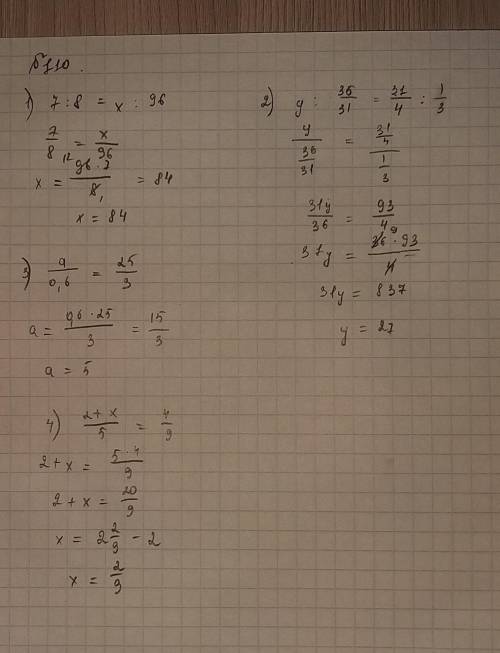 №110.
1) 7 : 8 = x : 96
7/8 = x/96
x = 96 · 7 / 8 = 84
12 1
x = 84
2) y : 36/31 = 31/4 : 1/3
y / (36/31) = (31/4) / (1/3)
31y/36 = 93/4
31y = 36 · 93 / 4
9
31y = 837
y = 27
3) a/0,6 = 25/3
a = 0,6 · 25 / 3 = 15/3
a = 5
4) 2 + x / 5 = 4/9
2 + x = 5 · 4 / 9
2 + x = 20/9
x = 2 2/9 - 2
x = 2/9